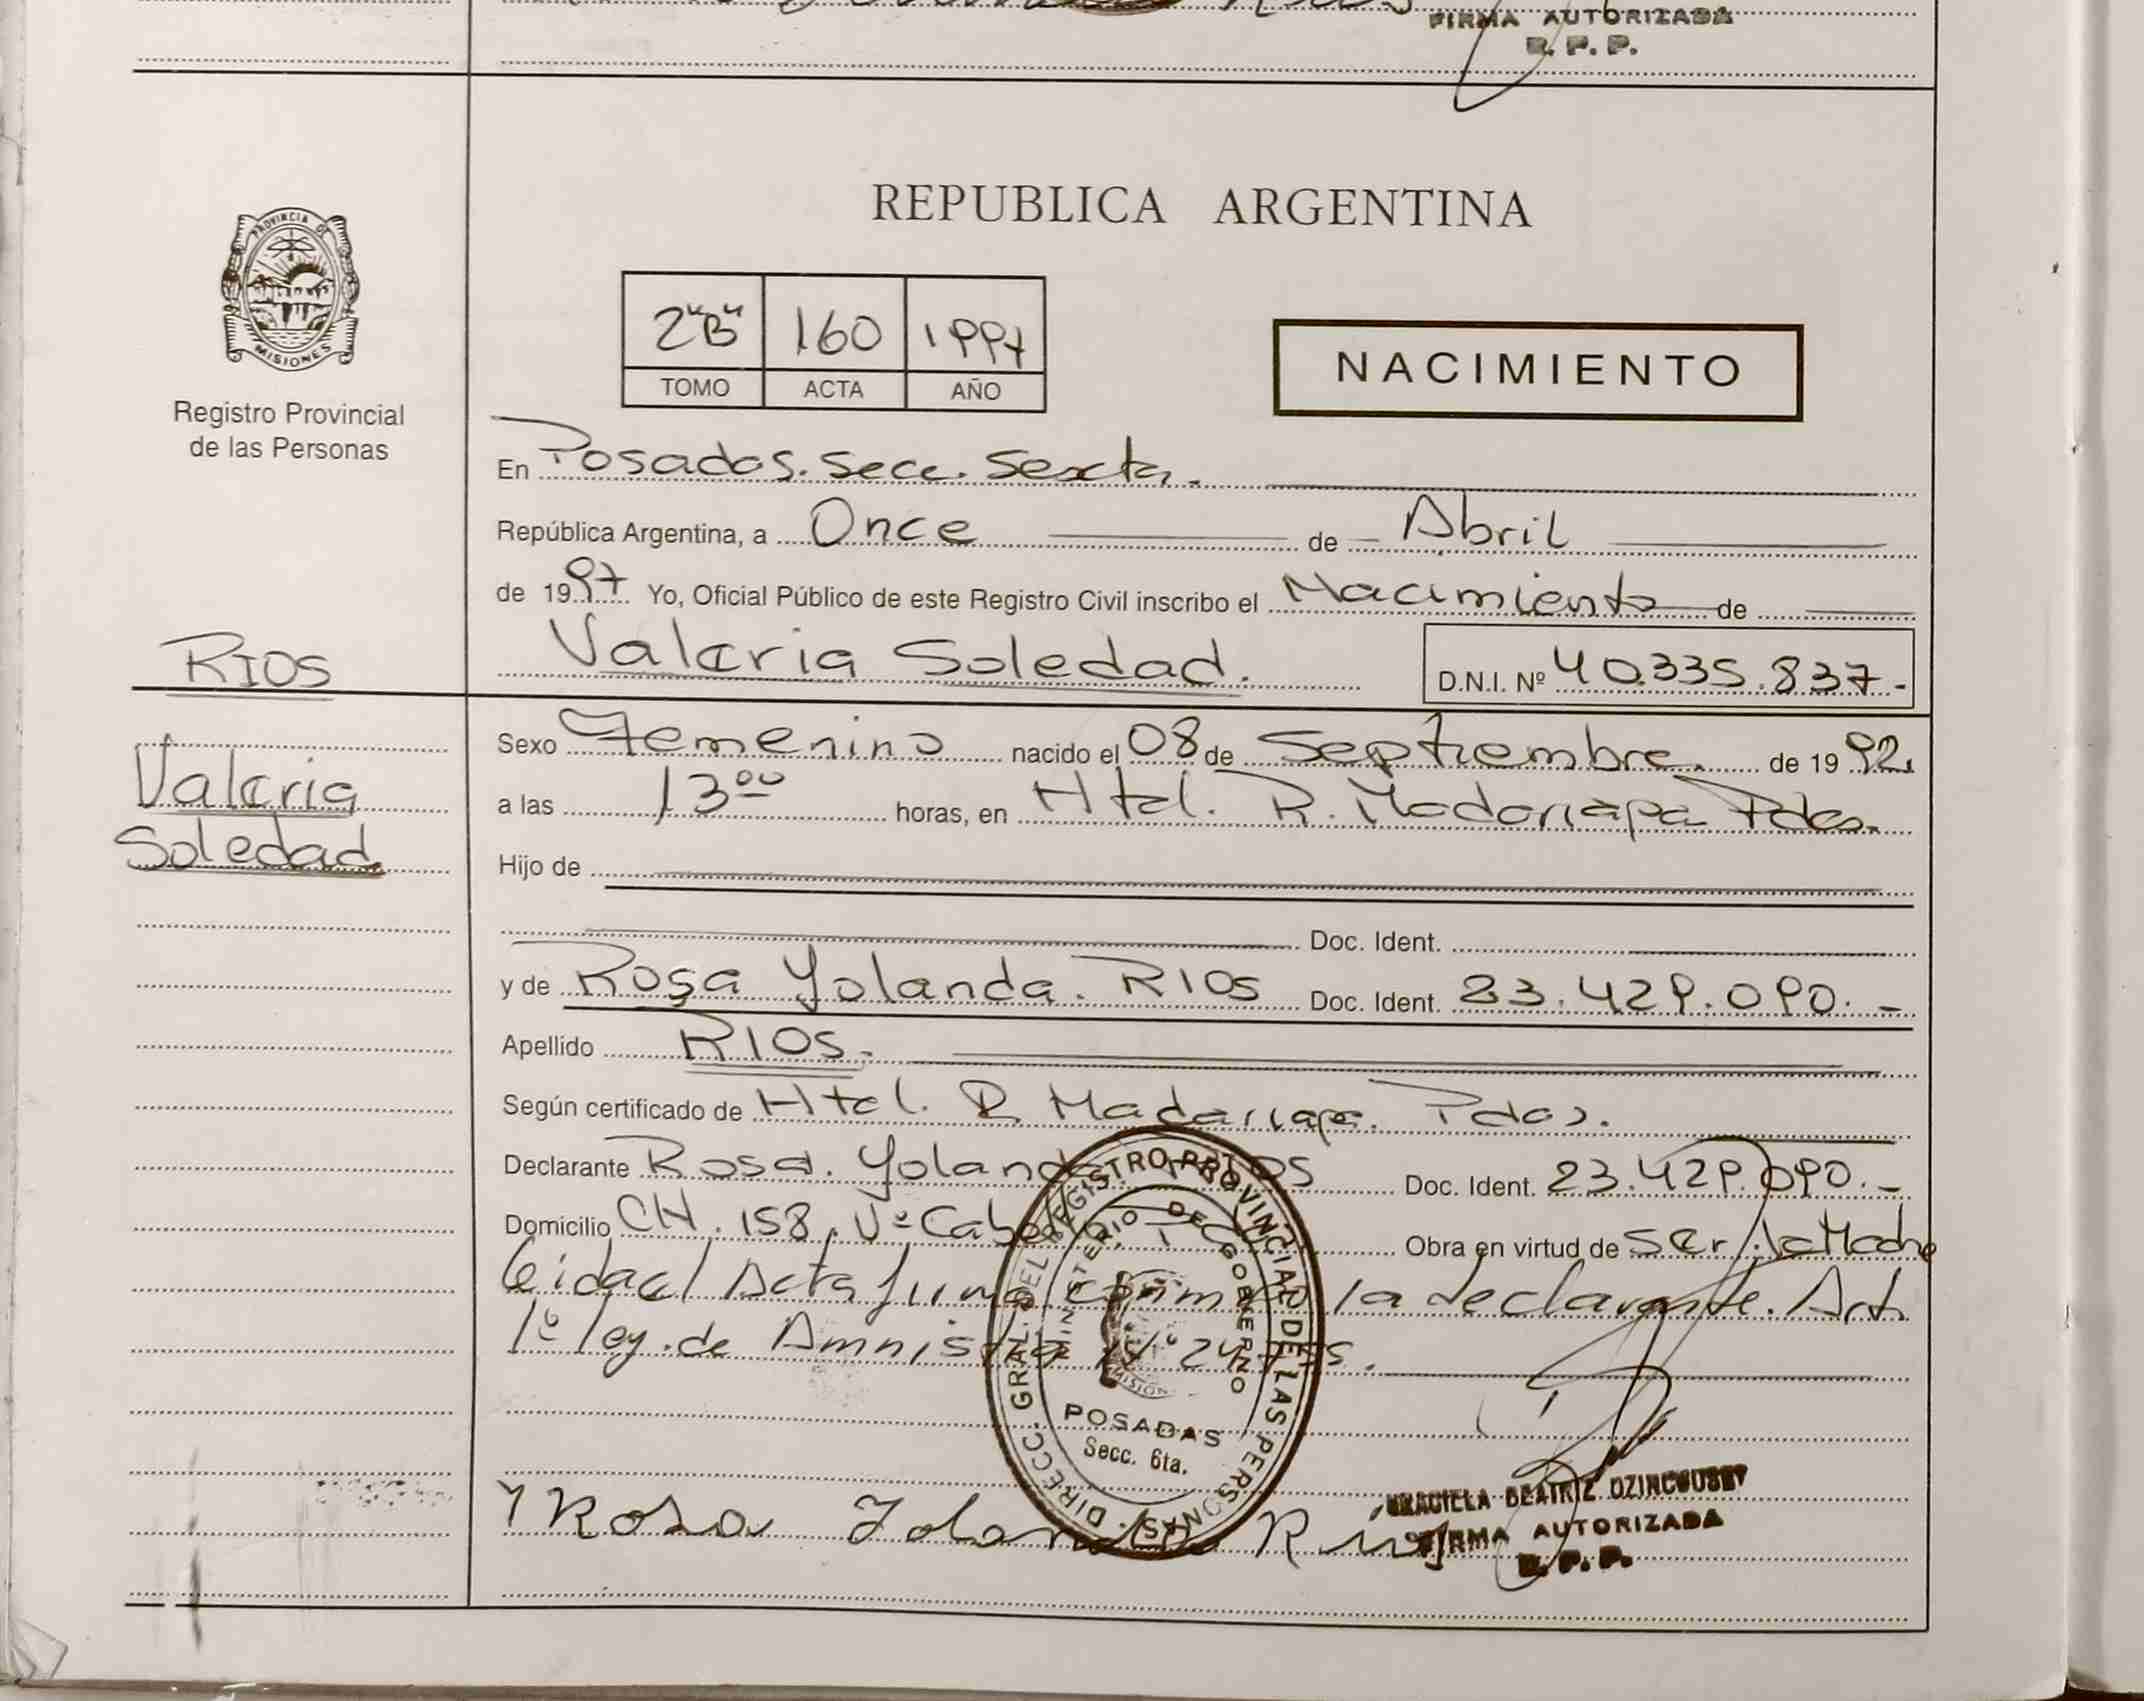 FIRMA AUTORIZADA
R. P. P.
PROVINCIA DE
MISIONES
Registro Provincial
de las Personas
REPUBLICA ARGENTINA
2"B" 160 1997
TOMO ACTA AÑO
NACIMIENTO
En Posadas. Secc. Sexta.
República Argentina, a Once de Abril
de 1997 Yo, Oficial Público de este Registro Civil inscribo el Nacimiento de
Valeria Soledad. D.N.I. Nº 40.335.837.-
RIOS
Valeria
Soledad.
Sexo Femenino nacido el 08 de Septiembre. de 1992.
a las 13ºº horas, en Htal. R. Madariaga Pdas.
Hijo de
Doc. Ident.
y de Rosa Yolanda. RIOS Doc. Ident. 23.429.090.-
Apellido RIOS.-
Según certificado de Htal. R. Madariaga. Pdas.
Declarante Rosa. Yolanda RIOS Doc. Ident. 23.429.090.-
Domicilio CH. 158. Vº Cabello Obra en virtud de ser la Madre
Leida el Acta firma conmigo la declarante. Art.
1º ley. de Amnistía Nº
DIRECC. GRAL. DEL REGISTRO PROVINCIAL DE LAS PERSONAS.
MINISTERIO DE GOBIERNO
MISIONES
POSADAS
Secc. 6ta.
Rosa Yolanda Rios
GRACIELA BEATRIZ
FIRMA AUTORIZADA
R. P. P.